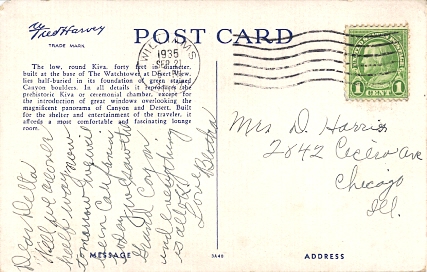 Fred Harvey
TRADE MARK
POST CARD
WILLIAMS
1935
SEP 21
1 CENT 1
The low, round Kiva, forty feet in diameter,
built at the base of The Watchtower at Desert View,
lies half-buried in its foundation of green stained
Canyon boulders. In all details it reproduces the
prehistoric Kiva or ceremonial chamber, except for
the introduction of great windows overlooking the
magnificent panorama of Canyon and Desert. Built
for the shelter and entertainment of the traveler, it
affords a most comfortable and fascinating lounge
room.
Dear Della
Well we are over
half way now
tomorrow we will
be in California
today
Grand Canyon
and everybody
is all O.K.
Love
Bertha
Mrs D. Harris
2842 Cicero Ave
Chicago
Ill.
MESSAGE
3A40
ADDRESS